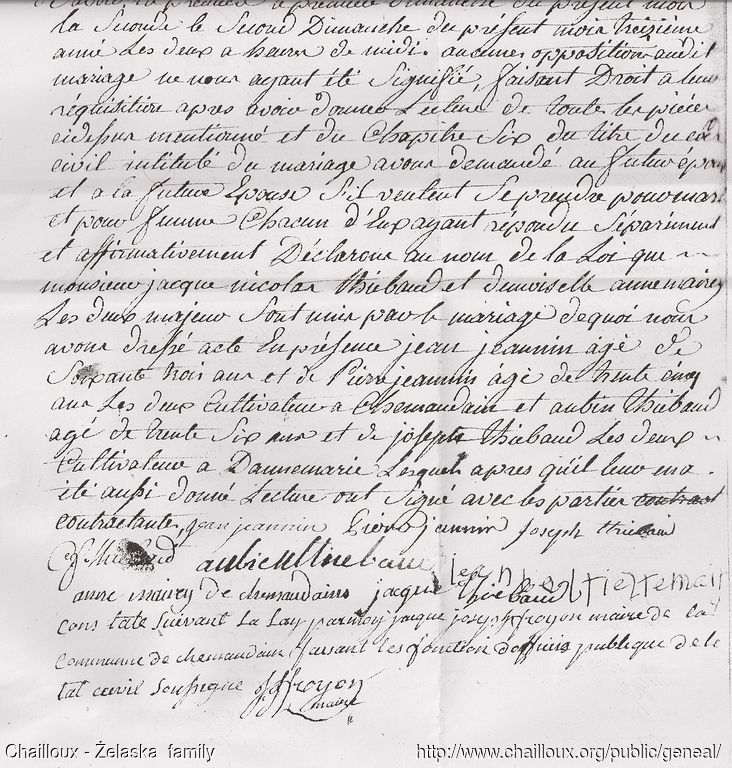 la premiere du présent mois
la Seconde le Second Dimanche du présent mois treizième
anné Les deux a heures de midi. aucunes opposition audit
mariage ne nous ayant été Signifié, faisant Droit a leur
réquisition apres avoir donné Lecture de toute les pièce
cidessus mentionné et du Chapitre Six du titre du
civil intitulé du mariage avons demandé au futur
et a la future Epouse S'il veulent Se prendre pour mari
et pour femme Chacun d'Eux ayant répondu Séparément
et affirmativement Déclarons au nom de la Loi que
monsieur jacque nicolas thiebaud et demoiselle anne mairey
Les deux majeur Sont unis par le mariage de quoi nous
avons dressé acte En présence jean jeannin âgé de
Soixante trois ans et de Pierre jeannin âgé de trente cinq
ans Les deux Cultivateur a Chemaudain et aubin thiebaud
agé de trente Six ans et de joseph thiebaud Les deux
Cultivateur a Dannemarie Lesquels apres qu'il leur en a
été aussi donné Lecture ont Signé avec les partier contract
contractante, jean jeannin Pierre jeannin Joseph thiebaud
aubin thiebaud
anne mairey de chemaudain jacque thiebaud
constate suivant La Loy par moy jacque joseph froyon maire de la
commune de chemaudain faisant les fonction d'officie publique de le
tat civil soussigne jj froyon
maire
Chailloux - Żelaska family
http://www.chailloux.org/public/geneal/